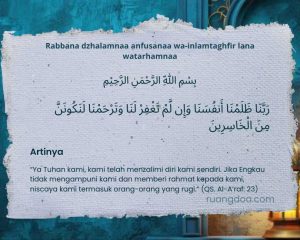 Rabbana dzhalamnaa anfusanaa wa-inlamtaghfir lana
watarhamnaa
بِسْمِ اللّٰهِ الرَّحْمَنِ الرَّحِيْمِ
رَبَّنَا ظَلَمْنَا أَنفُسَنَا وَإِن لَّمْ تَغْفِرْ لَنَا وَتَرْحَمْنَا لَنَكُونَنَّ
مِنَ الْخَاسِرِينَ
Artinya
“Ya Tuhan kami, kami telah menzalimi diri kami sendiri. Jika Engkau
tidak mengampuni kami dan memberi rahmat kepada kami,
niscaya kami termasuk orang-orang yang rugi.” (QS. Al-A'raf: 23)
ruangdoa.com